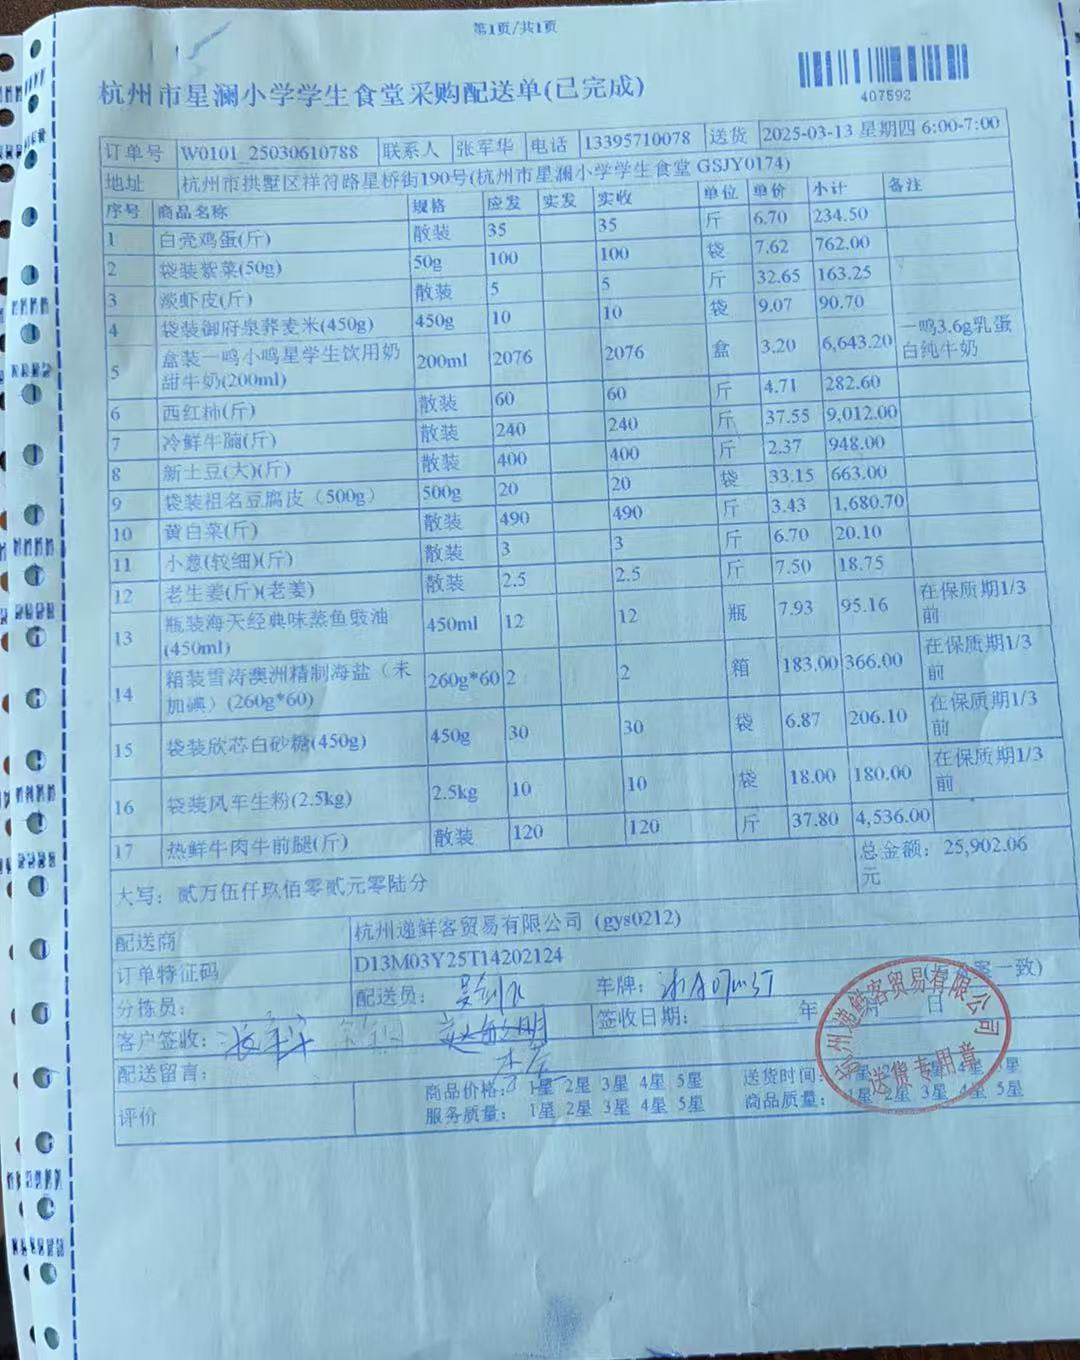 第1页/共1页
407592
杭州市星澜小学学生食堂采购配送单(已完成)
订单号 W0101_25030610788 联系人 张军华 电话 13395710078 送货 2025-03-13 星期四 6:00-7:00
地址 杭州市拱墅区祥符路星桥街190号(杭州市星澜小学学生食堂 GSJY0174)
序号 商品名称 规格 应发 实发 实收 单位 单价 小计 备注
1 白壳鸡蛋(斤) 散装 35 35 斤 6.70 234.50
2 袋装紫菜(50g) 50g 100 100 袋 7.62 762.00
3 淡虾皮(斤) 散装 5 5 斤 32.65 163.25
4 袋装御府泉荞麦米(450g) 450g 10 10 袋 9.07 90.70
5 盒装一鸣小鸣星学生饮用奶甜牛奶(200ml) 200ml 2076 2076 盒 3.20 6,643.20 一鸣3.6g乳蛋白纯牛奶
6 西红柿(斤) 散装 60 60 斤 4.71 282.60
7 冷鲜牛腩(斤) 散装 240 240 斤 37.55 9,012.00
8 新土豆(大)(斤) 散装 400 400 斤 2.37 948.00
9 袋装祖名豆腐皮（500g） 500g 20 20 袋 33.15 663.00
10 黄白菜(斤) 散装 490 490 斤 3.43 1,680.70
11 小葱(较细)(斤) 散装 3 3 斤 6.70 20.10
12 老生姜(斤)(老姜) 散装 2.5 2.5 斤 7.50 18.75
13 瓶装海天经典味蒸鱼豉油(450ml) 450ml 12 12 瓶 7.93 95.16 在保质期1/3前
14 箱装雪涛澳洲精制海盐（未加碘）(260g*60) 260g*60 2 2 箱 183.00 366.00 在保质期1/3前
15 袋装欣芯白砂糖(450g) 450g 30 30 袋 6.87 206.10 在保质期1/3前
16 袋装风车生粉(2.5kg) 2.5kg 10 10 袋 18.00 180.00 在保质期1/3前
17 热鲜牛肉牛前腿(斤) 散装 120 120 斤 37.80 4,536.00
大写：贰万伍仟玖佰零贰元零陆分 总金额：25,902.06元
配送商 杭州递鲜客贸易有限公司 (gys0212)
订单特征码 D13M03Y25T14202124
分拣员： 配送员： 车牌： 案一致)
客户签收：张军华 签收日期： 年 月 日
配送留言：
评价 商品价格： 1星 2星 3星 4星 5星 送货时间： 1星 2星 3星 4星 5星
服务质量： 1星 2星 3星 4星 5星 商品质量： 1星 2星 3星 4星 5星
杭州递鲜客贸易有限公司
送货专用章